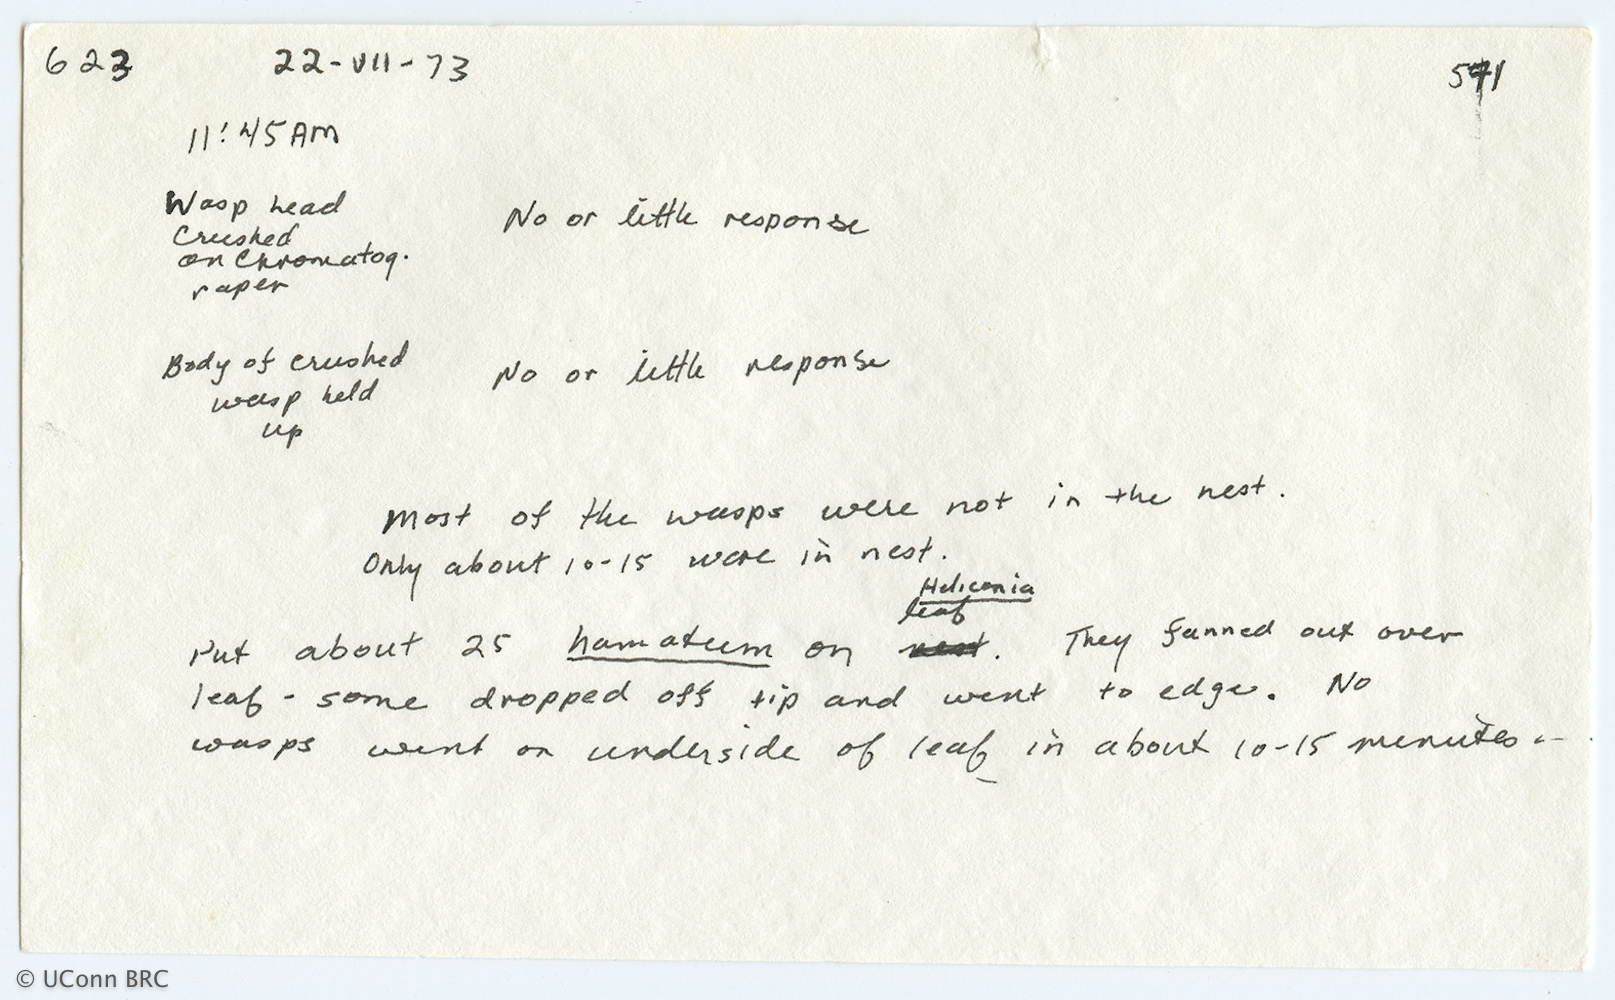 623 22-VII-73 571
11:45 AM
Wasp head
crushed
on chromatog.
paper
No or little response
Body of crushed
wasp held
up
No or little response
Most of the wasps were not in the nest.
Only about 10-15 were in nest.
Heliconia
leaf
Put about 25 hamatum on nest. They fanned out over
leaf - some dropped off tip and went to edge. No
wasps went on underside of leaf in about 10-15 minutes
© UConn BRC